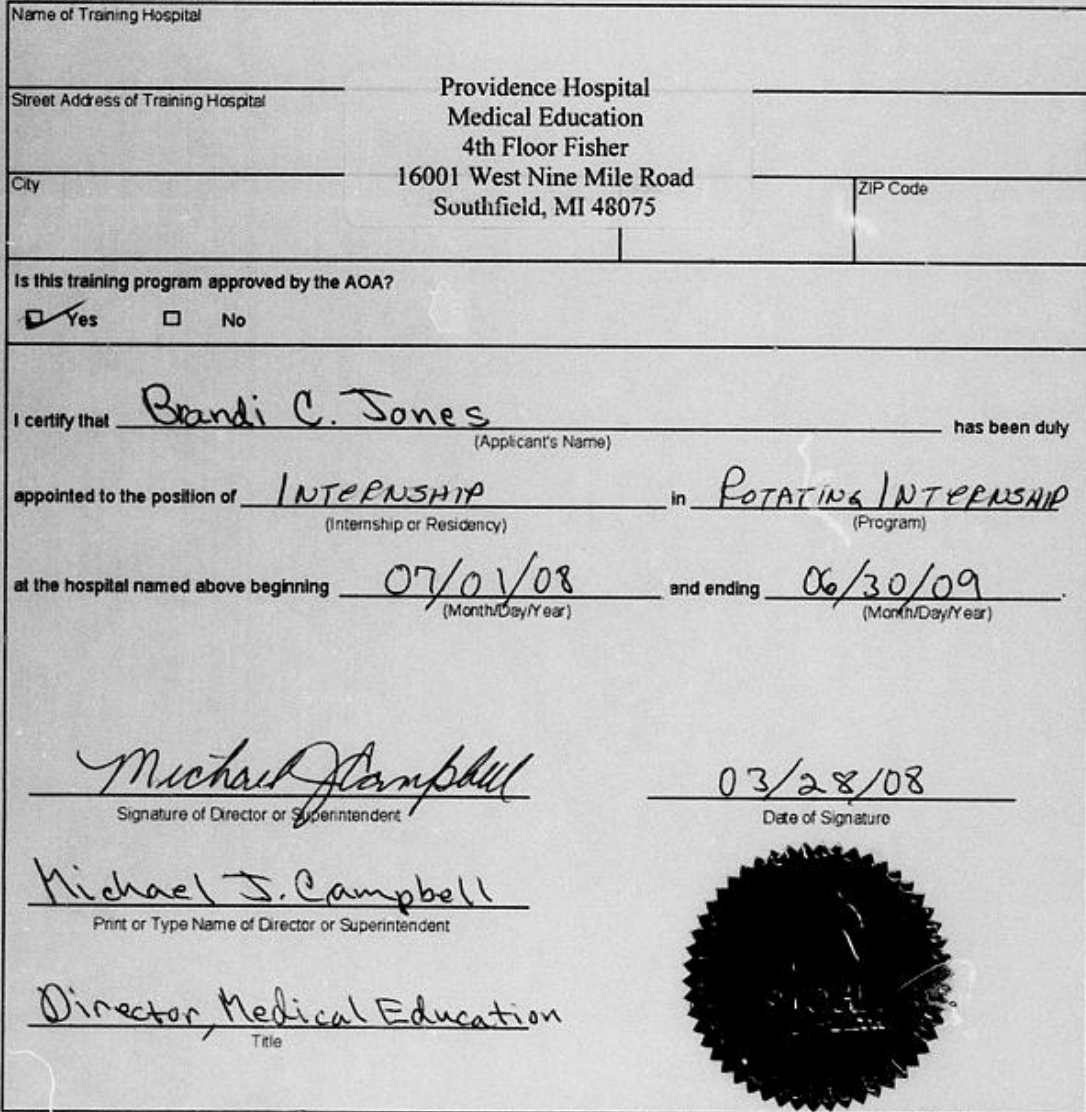 Name of Training Hospital
Providence Hospital
Street Address of Training Hospital
Medical Education
4th Floor Fisher
City
16001 West Nine Mile Road
ZIP Code
Southfield, MI 48075
Is this training program approved by the AOA?
Yes No
I certify that Brandi C. Jones has been duly
(Applicant's Name)
appointed to the position of INTERNSHIP in ROTATING INTERNSHIP
(Internship or Residency) (Program)
at the hospital named above beginning 07/01/08 and ending 06/30/09.
(Month/Day/Year) (Month/Day/Year)
Michael J Campbell 03/28/08
Signature of Director or Superintendent Date of Signature
Michael J. Campbell
Print or Type Name of Director or Superintendent
Director, Medical Education
Title